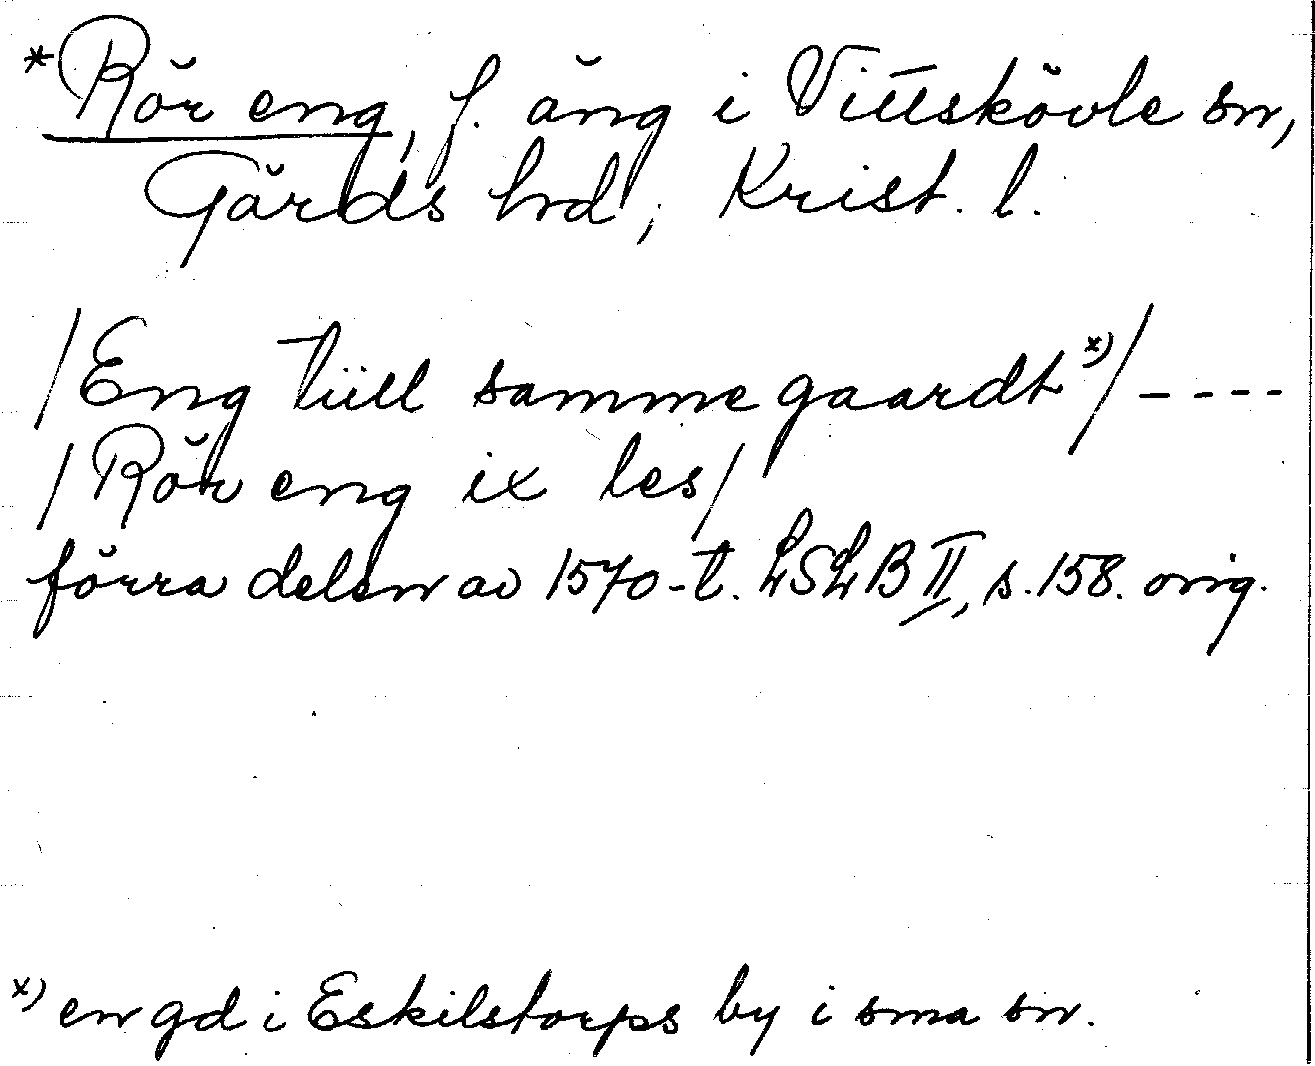 *Rör eng, f. äng i Vittskövle sn,
Gärds hd, Krist. l.
/Eng tiill samme gaardt x)/ ----
/Rör eng ix les/
förra delen av 1570-t. LSLB II, s. 158. orig.
x) en gd i Eskilstorps by i sma sn.